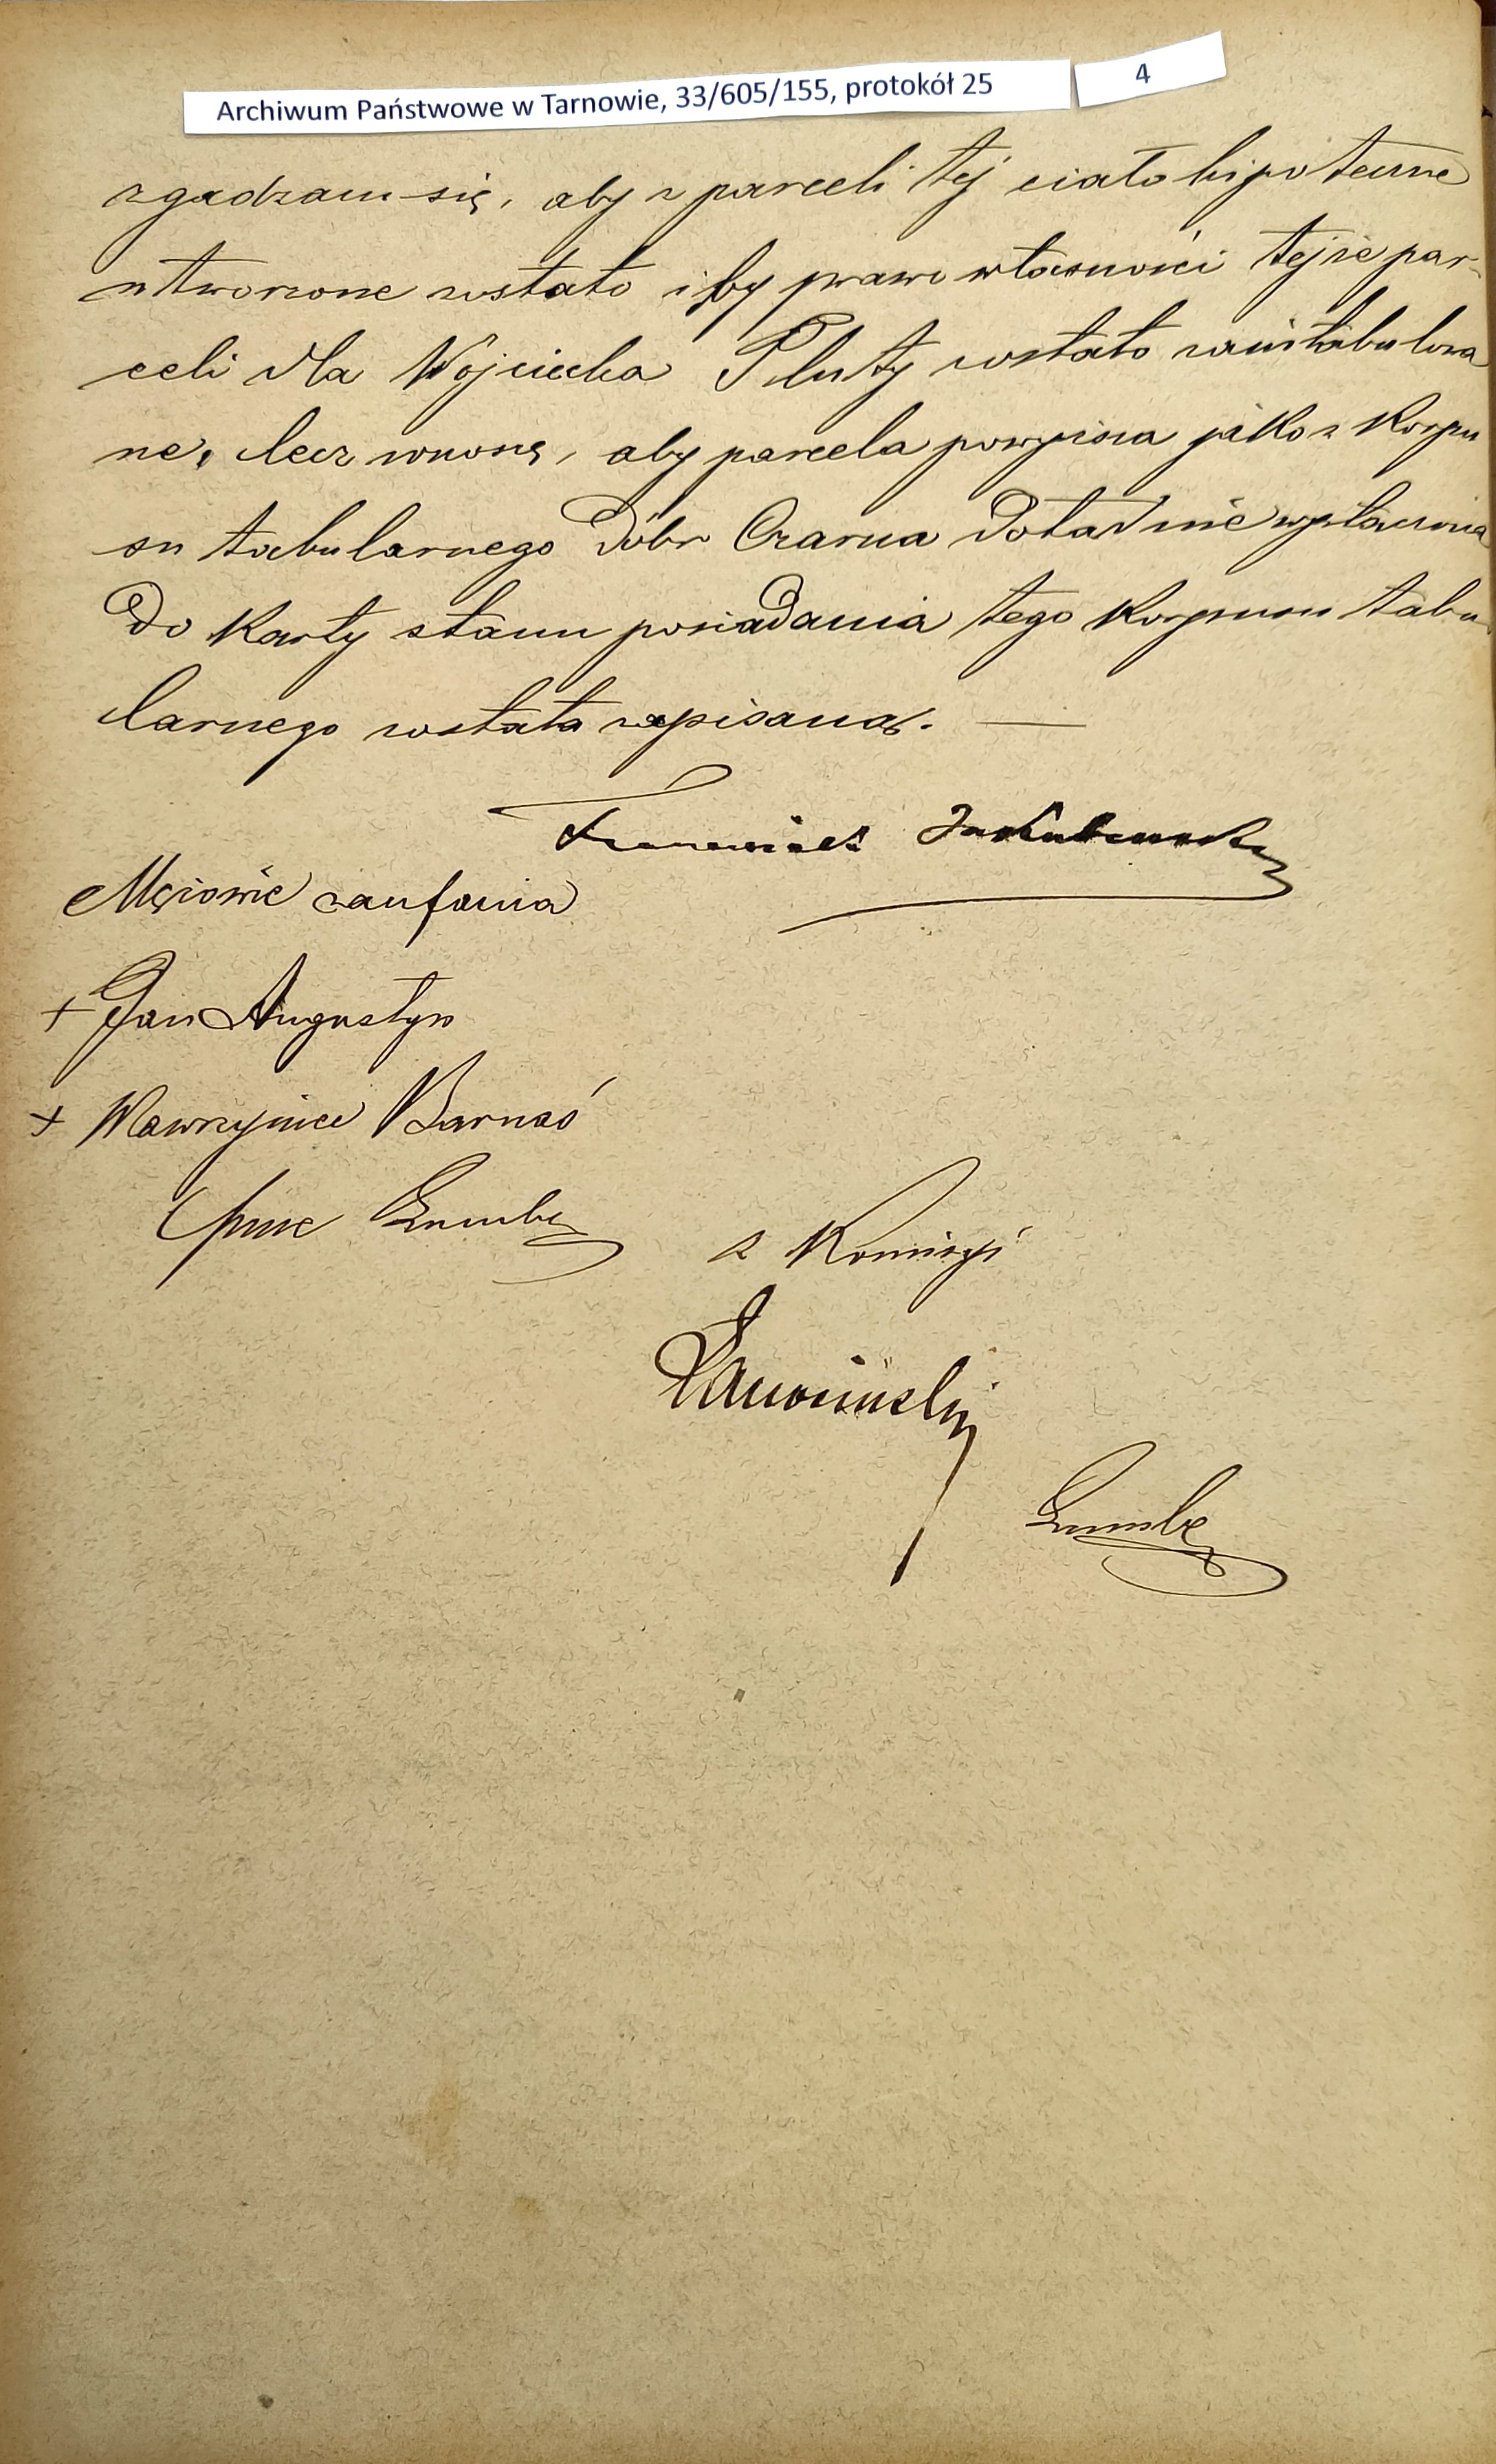 Archiwum Państwowe w Tarnowie, 33/605/155, protokół 25
4
zgadzam się, aby z parceli tej ciało hipoteczne
utworzone zostało i by prawo własności tejże par-
celi dla Wojciecha Pluty zostało zaintabulowa
ne, lecz wnoszę, aby parcela powyższa jako z korpu
su tabularnego Dóbr Czarna dotąd nie wyłączona
do karty stanu posiadania tego korpusu tabu-
larnego została wpisaną.
Franciszek
Mężowie zaufania
+ Jan Augustyn
+ Wawrzyniec Barnaś
z Komisyi